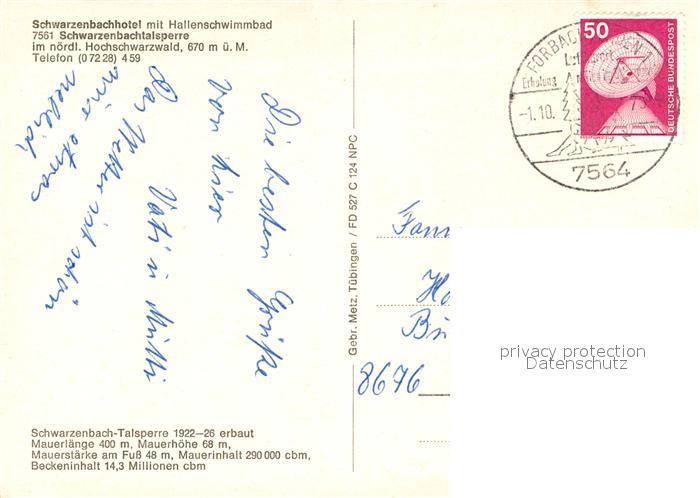 Schwarzenbachhotel mit Hallenschwimmbad
7561 Schwarzenbachtalsperre
im nördl. Hochschwarzwald, 670 m ü. M.
Telefon (0 72 28) 4 59
Die besten Grüße
von hier
Vati u Mutti
Das Wetter ist schön
nur etwas
neblich
Schwarzenbach-Talsperre 1922–26 erbaut
Mauerlänge 400 m, Mauerhöhe 68 m,
Mauerstärke am Fuß 48 m, Mauerinhalt 290 000 cbm,
Beckeninhalt 14,3 Millionen cbm
Gebr. Metz, Tübingen / FD 527 C 124 NPC
50
DEUTSCHE BUNDESPOST
FORBACH
Luftkurort
Erholung
–1.10.
7564
Fam
Ho
8676
privacy protection
Datenschutz